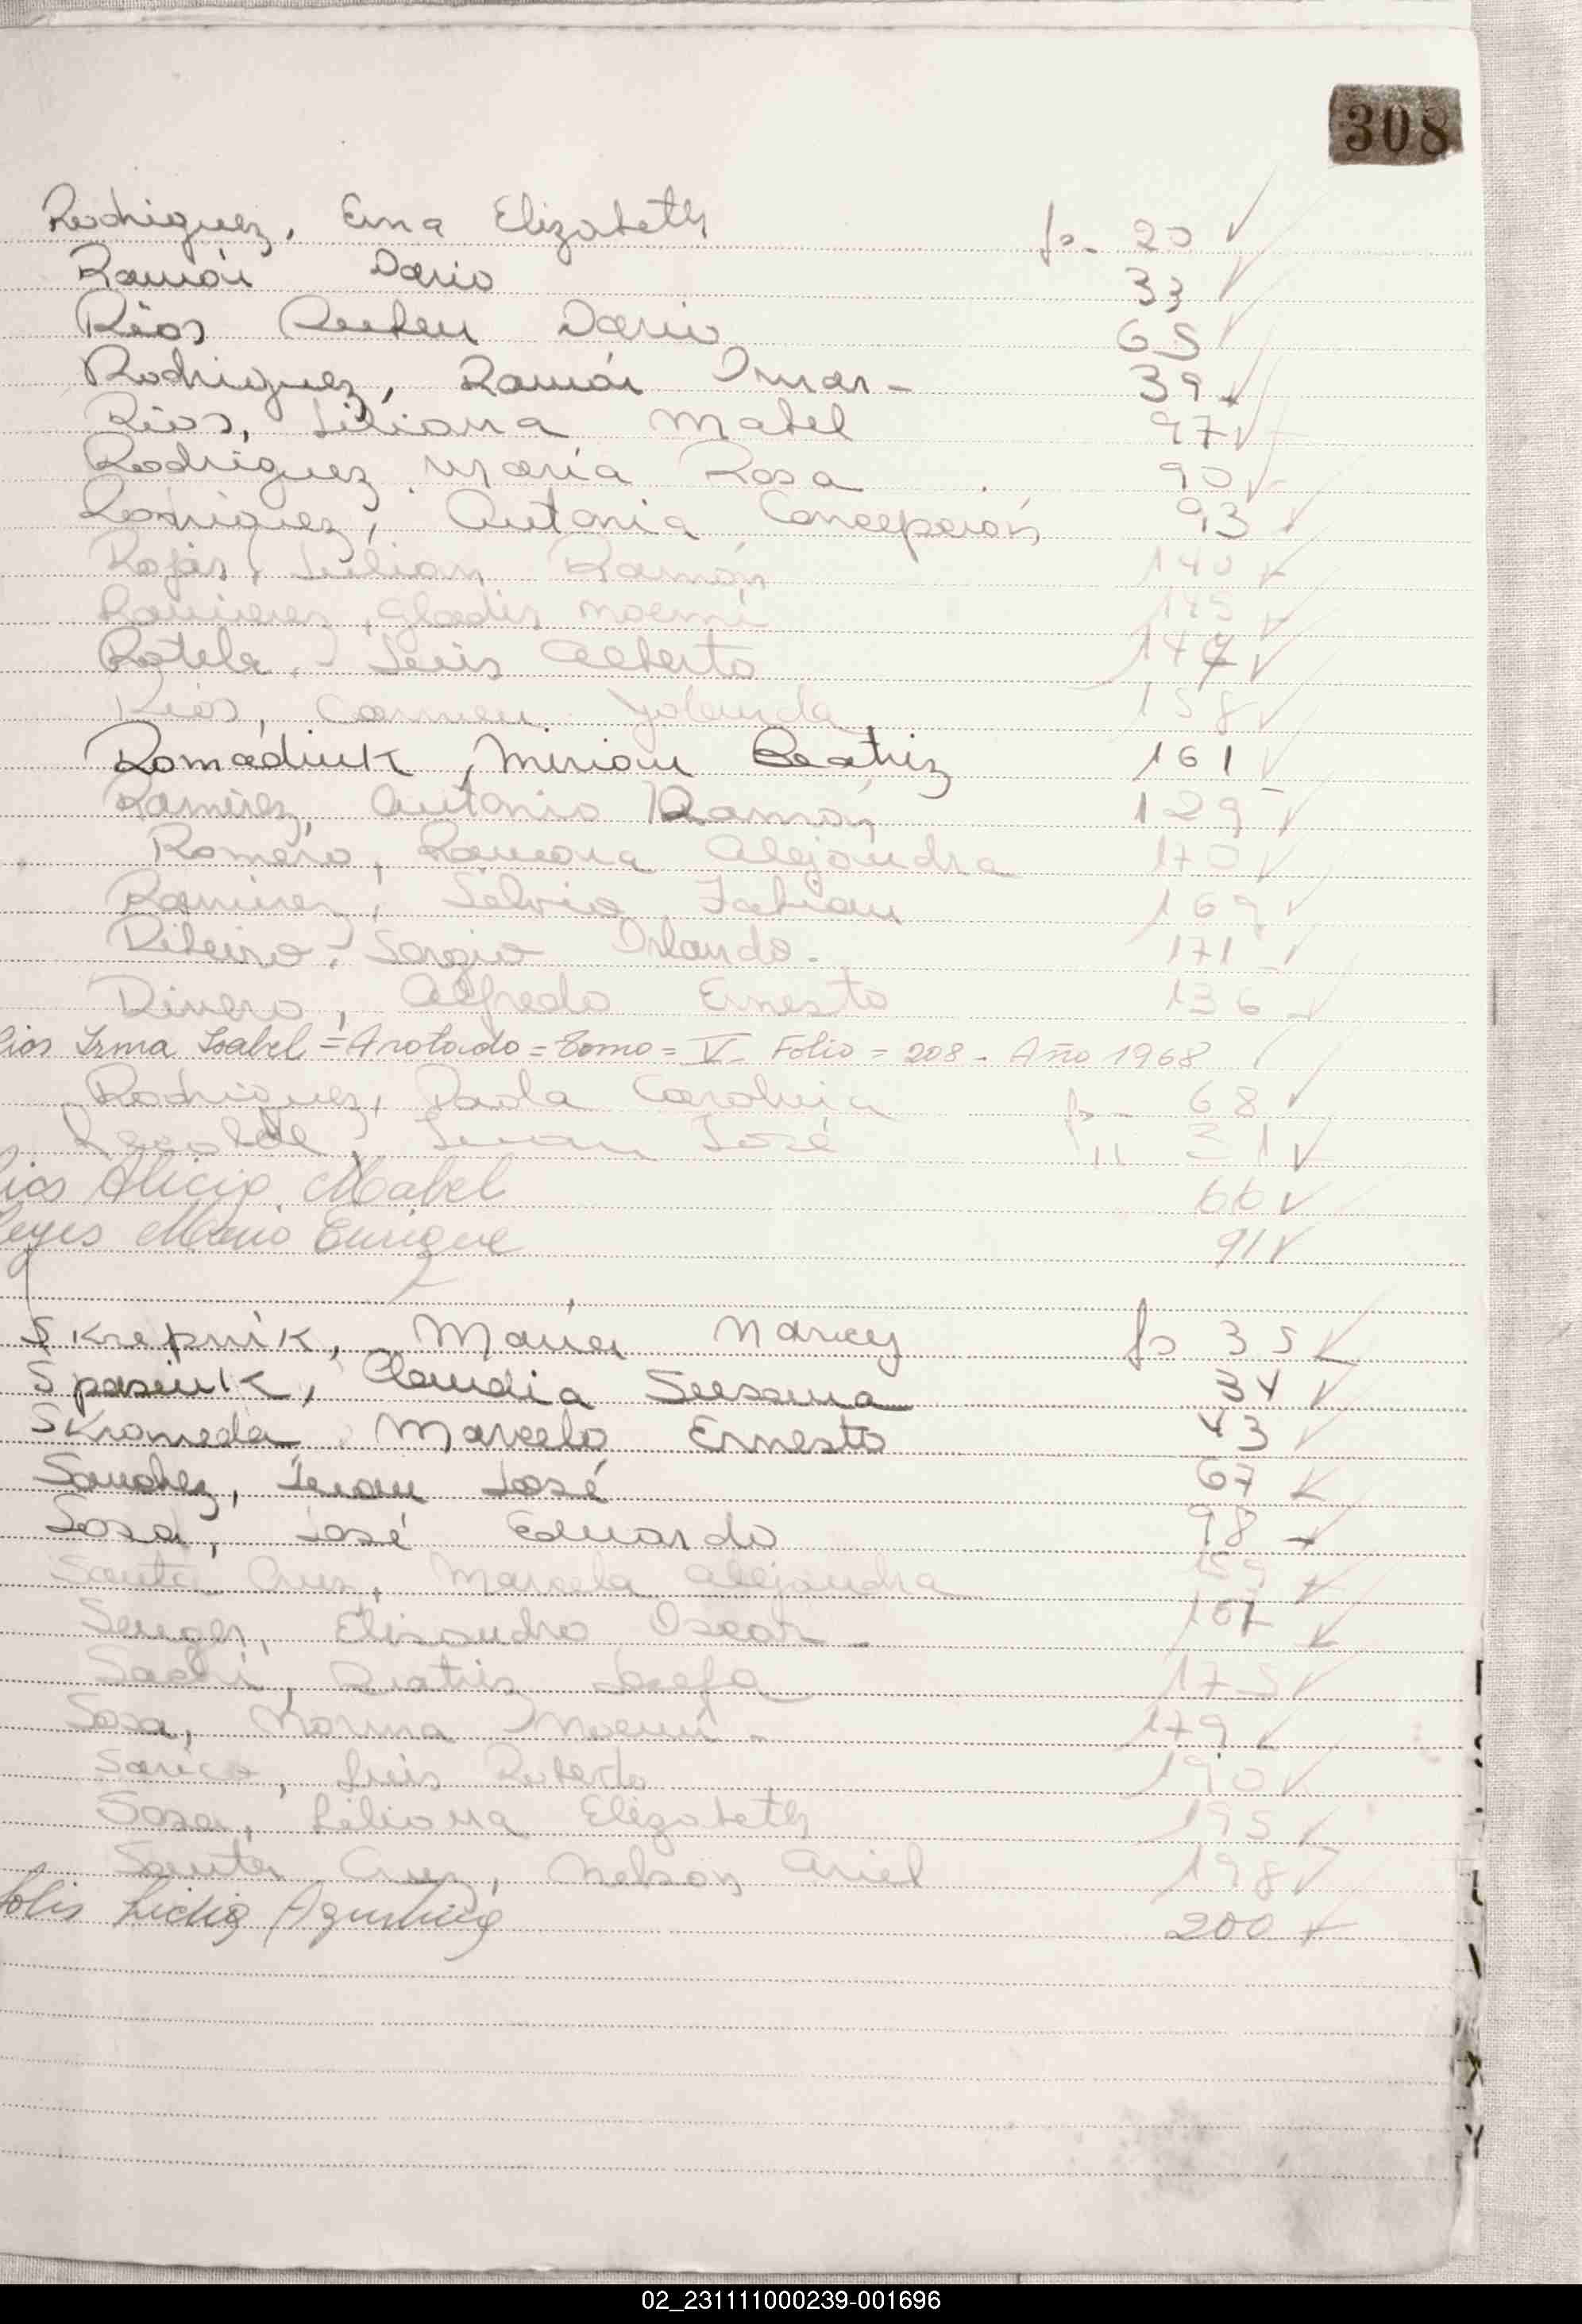 308
Rodriguez, Ema Elizabeth fo. 20
Ramón Dario 33
Rios Ruben Dario 65
Rodriguez, Ramón Omar - 39
Rios, Liliana Mabel 97
Rodriguez Maria Rosa 90
Rodriguez, Antonia Concepción 93
Rojas, Julian Ramón 140
Ramirez, Gladis Noemi 145
Rotela, Luis Alberto 147
Rios, Carmen Yolanda 158
Romaniuk, Miriam Beatriz 161
Ramirez, Antonio Ramón 129
Romero, Ramona Alejandra 170
Ramirez, Silvio Fabian 169
Ribeiro, Sergio Orlando. 171
Rivero, Alfredo Ernesto 136
Rios Irma Isabel = Anotado = Tomo = V - Folio = 208 - Año 1968
Rodriguez, Paola Carolina fo - 68
Juan José " 31
Rios Alicia Mabel 66
Reyes Mario Enrique 91
Skrepnik, Maria Nancy fo 35
Spasiuk, Claudia Susana 34
Skromeda Marcelo Ernesto 43
Sanchez, Juan José 67
Sosa, José Eduardo 98
Santa Cruz, Marcela Alejandra 159
Senger, Elisandro Oscar - 167
Beatriz Josefa 175
Sosa, Norma Noemi - 179
Luis Roberto 190
Sosa, Liliana Elizabeth 195
Santa Cruz, Nelson Ariel 198
Solis Lidia Agustina 200
02_231111000239-001696